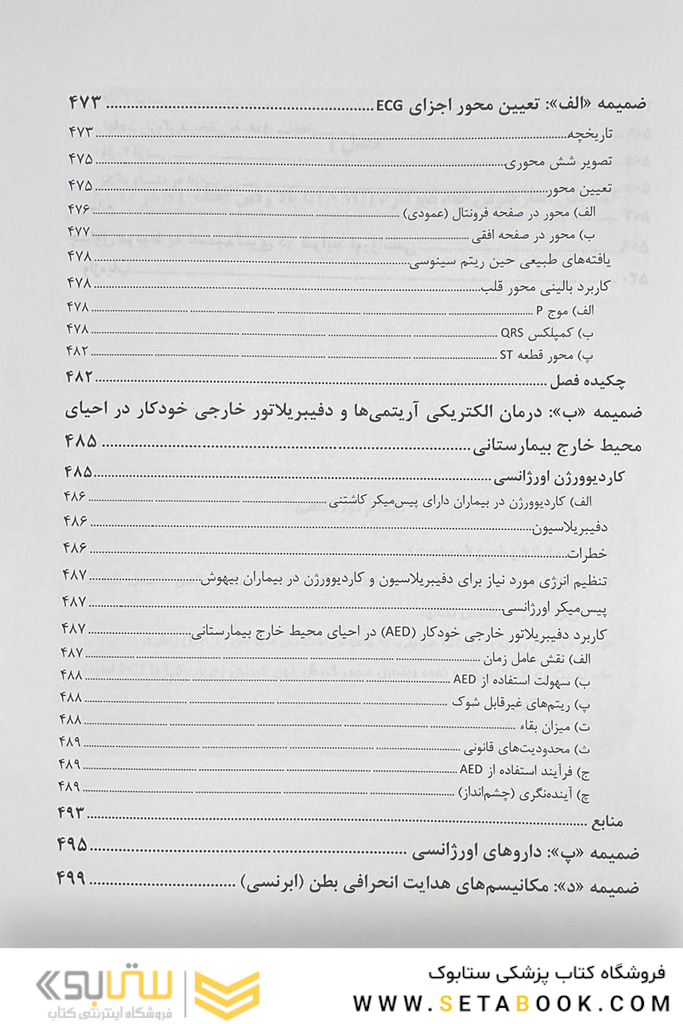 ضمیمه «الف»: تعیین محور اجزای ECG ........ ۴۷۳
تاریخچه ........ ۴۷۳
تصویر شش محوری ........ ۴۷۵
تعیین محور ........ ۴۷۵
الف) محور در صفحه فرونتال (عمودی) ........ ۴۷۶
ب) محور در صفحه افقی ........ ۴۷۷
یافته‌های طبیعی حین ریتم سینوسی ........ ۴۷۸
کاربرد بالینی محور قلب ........ ۴۷۸
الف) موج P ........ ۴۷۸
ب) کمپلکس QRS ........ ۴۷۸
پ) محور قطعه ST ........ ۴۸۲
چکیده فصل ........ ۴۸۲
ضمیمه «ب»: درمان الکتریکی آریتمی‌ها و دفیبریلاتور خارجی خودکار در احیای
محیط خارج بیمارستانی ........ ۴۸۵
کاردیوورژن اورژانسی ........ ۴۸۵
الف) کاردیوورژن در بیماران دارای پیس‌میکر کاشتنی ........ ۴۸۶
دفیبریلاسیون ........ ۴۸۶
خطرات ........ ۴۸۶
تنظیم انرژی مورد نیاز برای دفیبریلاسیون و کاردیوورژن در بیماران بیهوش ........ ۴۸۷
پیس‌میکر اورژانسی ........ ۴۸۷
کاربرد دفیبریلاتور خارجی خودکار (AED) در احیای محیط خارج بیمارستانی ........ ۴۸۷
الف) نقش عامل زمان ........ ۴۸۷
ب) سهولت استفاده از AED ........ ۴۸۸
پ) ریتم‌های غیرقابل شوک ........ ۴۸۸
ت) میزان بقاء ........ ۴۸۸
ث) محدودیت‌های قانونی ........ ۴۸۹
ج) فرآیند استفاده از AED ........ ۴۸۹
چ) آینده‌نگری (چشم‌انداز) ........ ۴۸۹
منابع ........ ۴۹۳
ضمیمه «پ»: داروهای اورژانسی ........ ۴۹۵
ضمیمه «د»: مکانیسم‌های هدایت انحرافی بطن (ابرنسی) ........ ۴۹۹
فروشگاه کتاب پزشکی ستابوک
WWW.SETABOOK.COM
ستابوک
فروشگاه اینترنتی کتاب